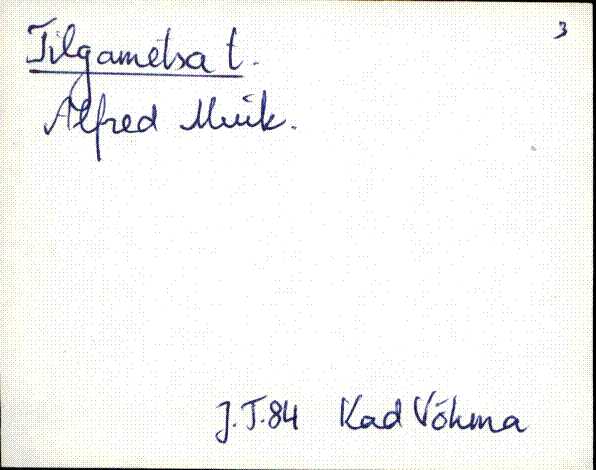 3
Tilgametsa t.
Alfred Muik.
J.T.84 Kad Võhma